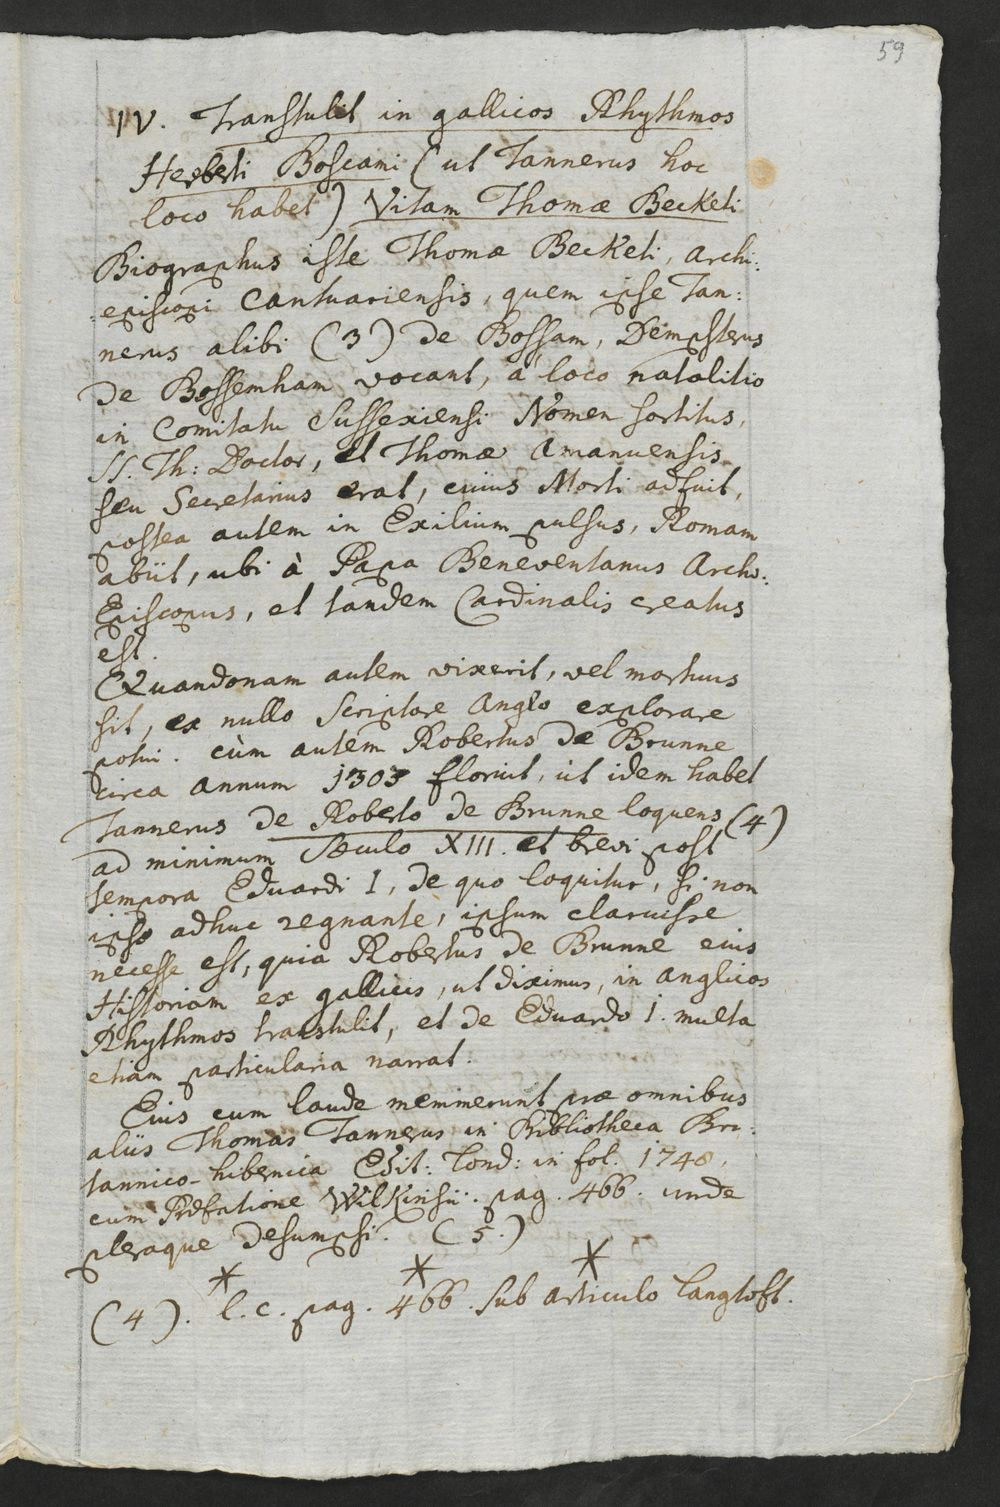 59
IV. Transtulit in gallicos Rhythmos
Herberti Boscami (ut Tannerus hoc
loco habet) Vitam Thomæ Becketi
Biographus iste Thomæ Becketi, Archi:
episcopi Cantuariensis, quem ipse Tan:
nerus alibi (3) de Bossam, Dempsterus
de Bossemham vocant, à loco natalitio
in Comitatu Sussexiensi Nomen sortitus,
SS. Th: Doctor, et Thomæ Amanuensis
seu Secretarius erat, cuius Morti adfuit,
postea autem in Exilium pulsus, Romam
abiit, ubi à Papa Beneventanus Archi:
Episcopus, et tandem Cardinalis creatus
est.
Quandonam autem vixerit, vel mortuus
sit, ex nullo Scriptore Anglo explorare
potui. cùm autem Robertus de Brunne
circa annum 1303 floruit, ut idem habet
Tannerus de Roberto de Brunne loquens (4)
ad minimum Sæculo XIII. et brevi post
tempora Eduardi I, de quo loquitur, si non
ipso adhuc regnante, ipsum claruisse
necesse est, quia Robertus de Brunne eius
Historiam ex gallicis, ut diximus, in anglicos
Rhythmos transtulit, et de Eduardo I. multa
etiam particularia narrat.
Eius cum laude meminerunt præ omnibus
aliis Thomas Tannerus in Bibliotheca Bri:
tannico-hibernica Edit: Lond: in fol. 1748,
cum Præfatione Wilkinsii. pag. 466. unde
pleraque desumpsi. (5.)
* * *
(4). l.c. pag. 466. sub articulo Langtoft.